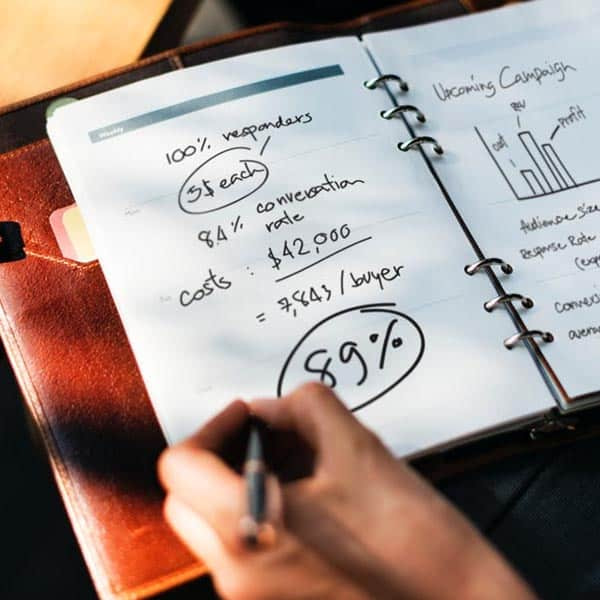 Weekly
100% responders
5$ each
8.4% conversation
rate
costs : $42,000
= 7,843 / buyer
89%
Upcoming Campaign
cost
Profit
Audience Size
Response Rate